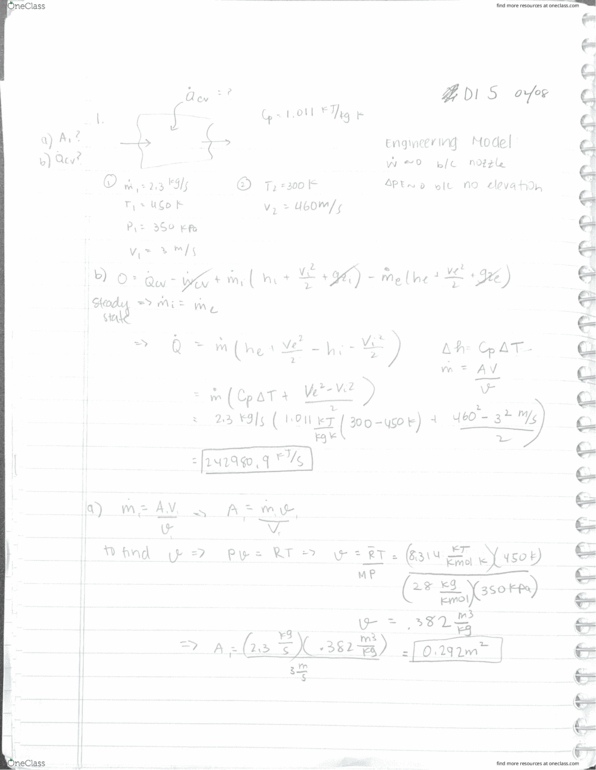 OneClass
find more resources at oneclass.com
DIS 04/08
1.
Q̇cv = ?
Cp = 1.011 kJ/kg K
a) A₁?
b) Q̇cv?
Engineering Model
Ẇ ≈ 0 b/c nozzle
ΔPE ≈ 0 b/c no elevation
① ṁ₁ = 2.3 kg/s
T₁ = 450 K
P₁ = 350 kPa
V₁ = 3 m/s
② T₂ = 300 K
V₂ = 460 m/s
b) 0 = Q̇cv - Ẇcv + ṁi (hi + Vi²/2 + gzi) - ṁe (he + Ve²/2 + gze)
steady state => ṁi = ṁe
=> Q̇ = ṁ (he + Ve²/2 - hi - Vi²/2)
Δh = Cp ΔT
ṁ = AV/v
= ṁ (Cp ΔT + (Ve² - Vi²)/2)
= 2.3 kg/s (1.011 kJ/kg K (300 - 450 K) + (460² - 3² m/s)/2)
= 242980.9 kJ/s
a) ṁ₁ = A₁V₁/v => A₁ = ṁ₁v₁/V₁
to find v => Pv = RT => v = R̄T/MP = (8.314 kJ/kmol K)(450 K)/(28 kg/kmol)(350 kPa)
v = .382 m³/kg
=> A₁ = (2.3 kg/s)(.382 m³/kg)/3 m/s = 0.292 m²
OneClass
find more resources at oneclass.com